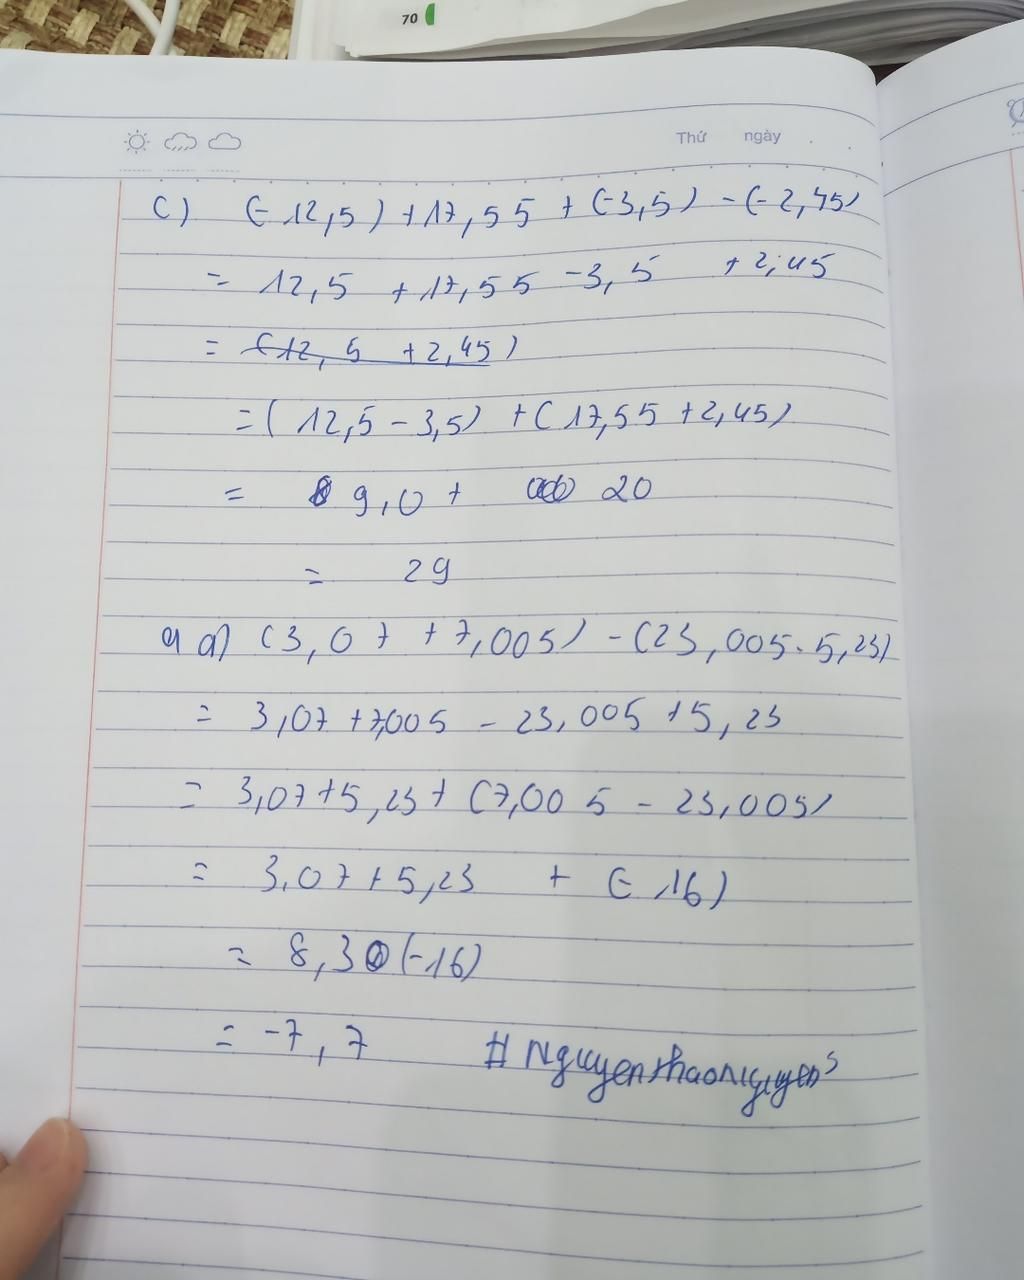 70
Thứ ngày . .
c) (-12,5) + 17,55 + (-3,5) - (-2,45)
= 12,5 + 17,55 - 3,5 + 2,45
= (12,5 + 2,45)
= (12,5 - 3,5) + (17,55 + 2,45)
= 9,0 + 20
= 29
4 a) (3,07 + 7,005) - (23,005 - 5,23)
= 3,07 + 7,005 - 23,005 + 5,23
= 3,07 + 5,23 + (7,005 - 23,005)
= 3,07 + 5,23 + (-16)
= 8,30 (-16)
= -7,7 # Nguyenthaonguyen